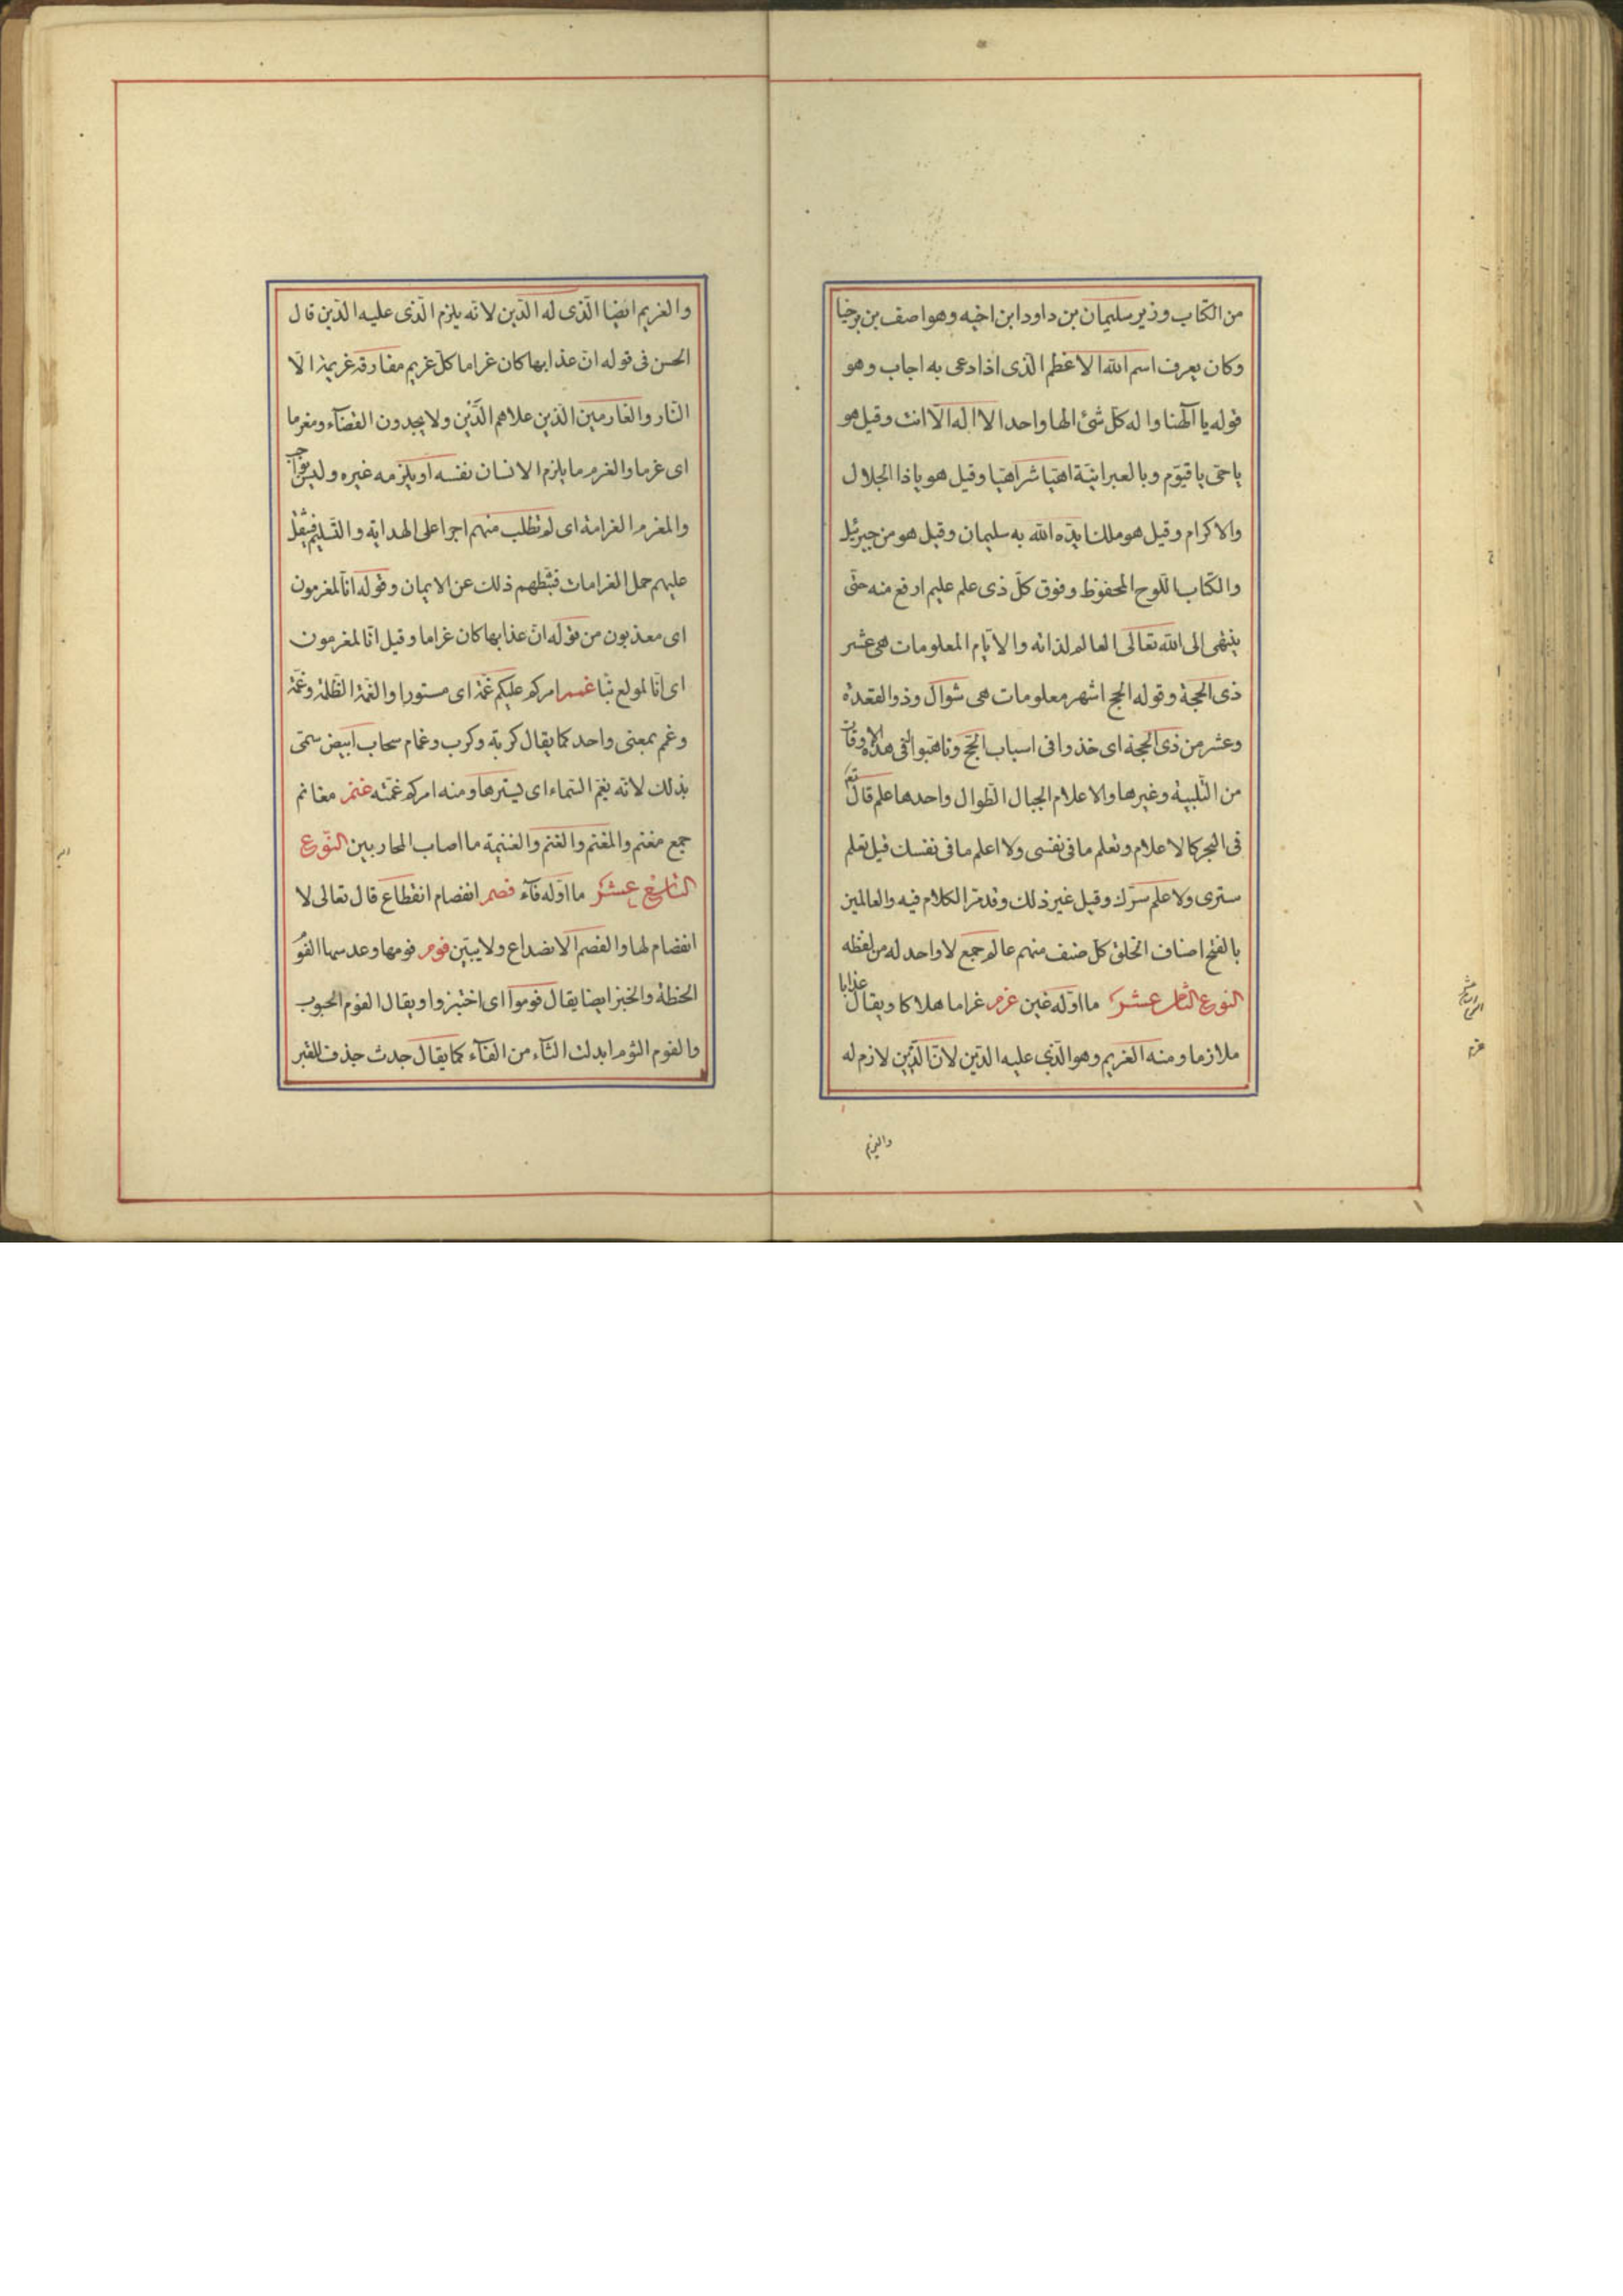 من الكتاب وزير سليمان بن داود ابن اخيه وهو اصف بن برخيا
وكان يعرف اسم الله الاعظم الذى اذا دعى به اجاب وهو
قوله يا الهنا واله كل شئ الها واحدا لا اله الا انت وقيل هو
ياحى ياقيوم وبالعبرانية اهيا شراهيا وقيل هو ياذا الجلال
والاكرام وقيل هو ملك ايده الله به سليمان وقيل هو من جبرئيل
والكتاب اللوح المحفوظ وفوق كل ذى علم عليم ارفع منه حتى
ينتهى الى الله تعالى العالم لذاته والايام المعلومات هى عشر
ذى الحجة وقوله الحج اشهر معلومات هى شوال وذوالقعدة
وعشر من ذى الحجة اى خذوا فى اسباب الحج وتاهبوا فى هذه الاوقات
من التلبية وغيرها والاعلام الجبال الطوال واحدها علم قال تع
فى البحر كالاعلام وتعلم ما فى نفسى ولا اعلم ما فى نفسك قيل تعلم
سترى ولا علم سرك وقيل غير ذلك وقد مر الكلام فيه والعالمين
بالفتح اصناف الخلق كل صنف منهم عالم جمع لا واحد له من لفظه
النوع الثامن عشر ما اوله غين غرم غراما هلاكا ويقال عذابا
ملازما ومنه الغريم وهو الذى عليه الدين لان الدين لازم له
والغريم
والغريم ايضا الذى له الدين لانه يلزم الذى عليه الدين قال
الحسن فى قوله ان عذابها كان غراما كل غريم مفارقة غريمة الا
النار والغارمين الذين علاهم الدين ولا يجدون القضاء ومغرما
اى غرما والغرم ما يلزم الانسان نفسه او يلزمه غيره وليس بواجب
والمغرم الغرامة اى لم تطلب منهم اجرا على الهداية والتسليم فيثقل
عليهم حمل الغرامات فثبطهم ذلك عن الايمان وقوله انا لمغرمون
اى معذبون من قوله ان عذابها كان غراما وقيل انا لمغرمون
اى انا لمولع بنا غمم امركم عليكم غمة اى مستورا والغمة الظلمة وغمة
وغم بمعنى واحد كما يقال كربة وكرب وغمام سحاب ابيض سمى
بذلك لانه يغم السماء اى يسترها ومنه امركم غمته غنم مغانم
جمع مغنم والمغنم والغنم والغنيمة ما اصاب المحاربين النوع
التاسع عشر ما اوله فآء فصم انفصام انقطاع قال تعالى لا
انفصام لها والفصم الانصداع ولا يبين فوم فومها وعدسها الفوم
الحنطة والخبز ايضا يقال فوموا اى اختبزوا ويقال الفوم الحبوب
والفوم الثوم ابدلت الثآء من الفآء كما يقال جدث جدف للقبر